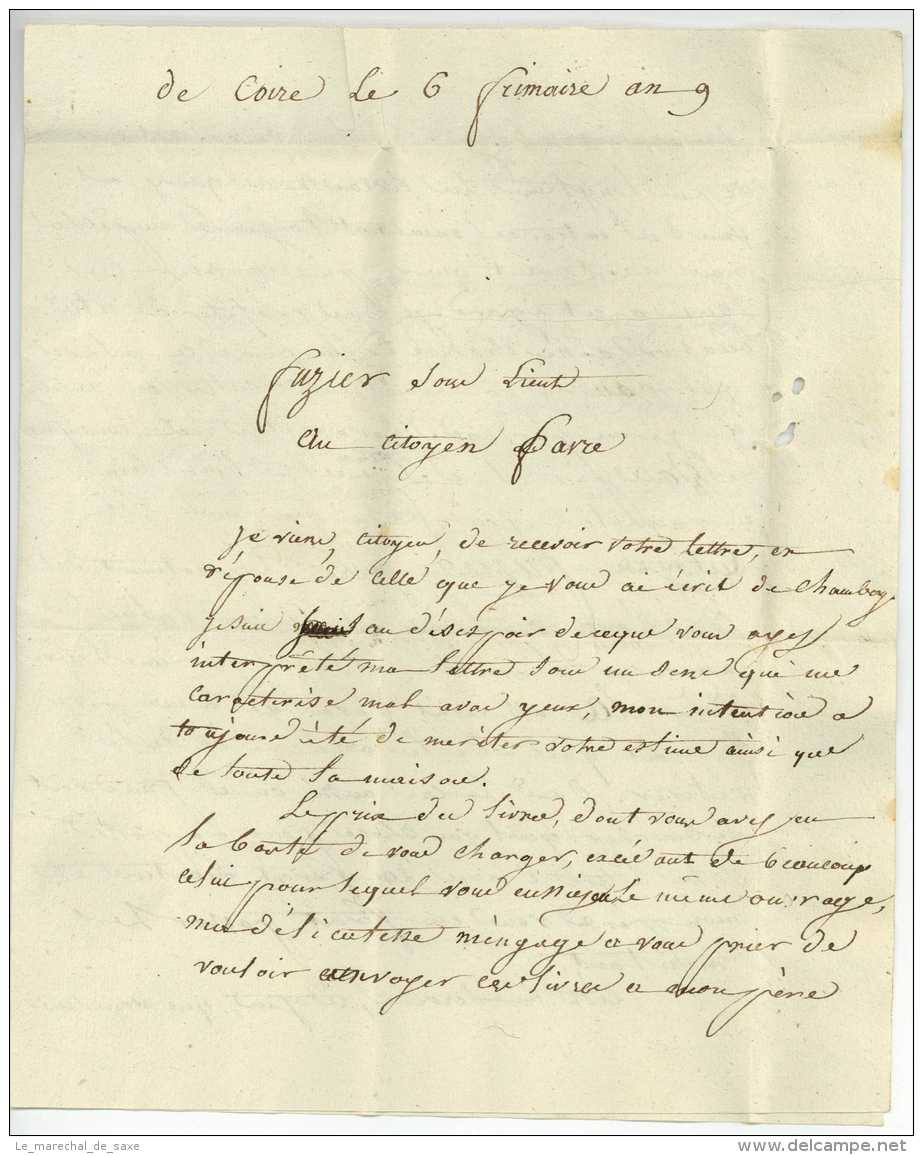 de Coire le 6 frimaire an 9
fuzier sous Lieut
Au citoyen favre
Je viens, citoyen, de recevoir votre lettre, en
réponse de celle que je vous ai écrit de Chambery.
je suis au désespoir de ceque vous ayez
interprété ma lettre sous un sens qui me
caracterise mal a vos yeux, mon intention a
toujours été de meriter votre estime ainsi que
de toute la maison.
Le prix des livres, dont vous avez eu
la bonté de vous charger, excédant de beaucoup
celui pour lequel vous le même ouvrage,
ma délicatesse m'engage a vous prier de
vouloir envoyer ces livres a mon père
Le_marechal_de_saxe
www.delcampe.net